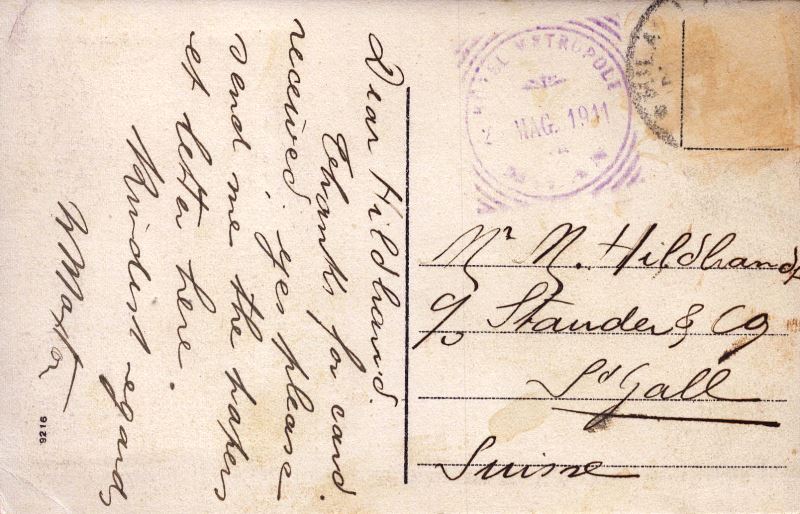 Dear Hildhand.
Thanks for card
received, yes please
send me the papers
et letter here.
Kindest regards
9216
HOTEL METROPOLE
2 MAG. 1911
MILAN
Mr N. Hildhand
c/o Stauder & Co
St Gall
Suisse